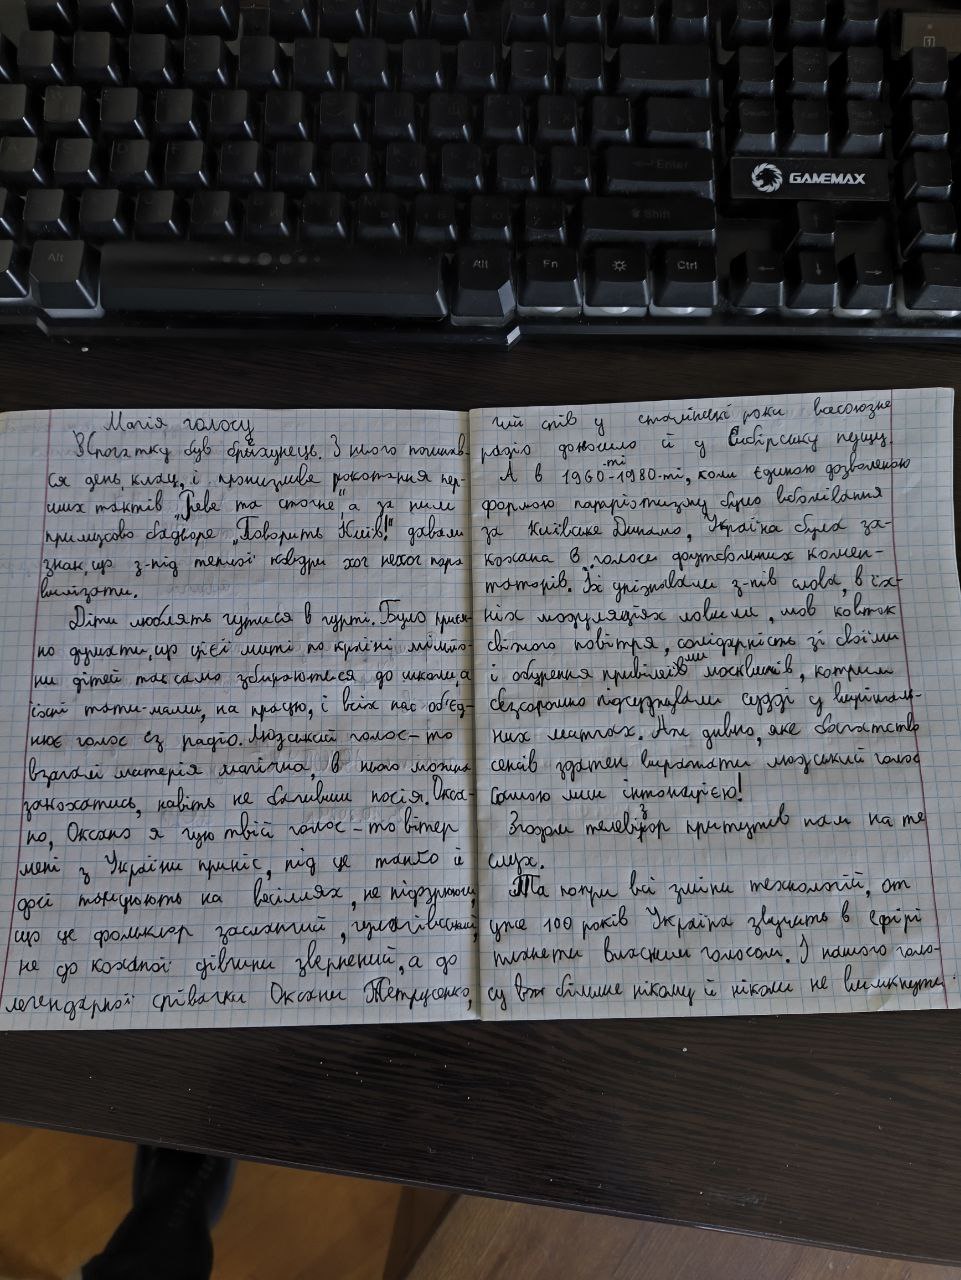 Alt
Alt
Fn
Ctrl
Enter
Shift
GAMEMAX
Магія голосу
Спочатку був брехунець. З нього починав-
ся день, клац, і пронизливе рокотання пер-
ших тактів „Реве та стогне", а за ним
примусово бадьоре „Говорить Київ!" давали
знак, що з-під теплої ковдри хоч нехоч пора
вилізати.
Діти люблять чутися в гурті. Було приєм-
но думати, що цієї миті по країні мільйо-
ни дітей так само збираються до школи, а
їхні тати-мами, на працю, і всіх нас об'єд-
нює голос із радіо. Людський голос – то
взагалі матерія магічна, в нього можна
закохатись, навіть не бачивши носія. Окса-
но, Оксано я чую твій голос – то вітер
мені з України приніс, під це танго й
досі танцюють на весіллях, не підозрюючи,
що це фольклор засланчий,
не до коханої дівчини звернений, а до
легендарної співачки Оксани Петрусенко,
чий спів у сталінські роки всесоюзне
радіо доносило й у Сибірську пущу.
А в 1960-ті-1980-ті, коли єдиною дозволеною
формою патріотизму було вболівання
за Київське Динамо, Україна була за-
кохана в голоси футбольних комен-
таторів. Їх упізнавали з-пів слова, в їх-
ніх модуляціях ловили, мов ковток
свіжого повітря, солідарність зі своїми
і обурення москвичів, котрим
безсоромно підсуджували судді у вирішаль-
них матчах. Аж дивно, яке багатство
сенсів здатен виражати людський голос
самою лиш інтонацією!
Згодом телевізор притупив нам на те
слух.
Та попри всі зміни технологій, от
уже 100 років Україна звучить в ефірі
планети власним голосом. І нашого голо-
су вже більше нікому й ніколи не вимкнути.